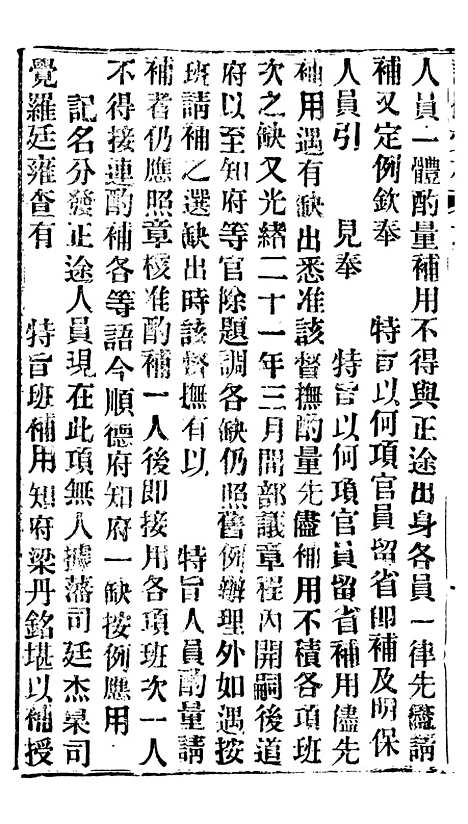 人員一體酌量補用不得與正途出身各員一律先儘請
補又定例欽奉　特旨以何項官員留省卽補及明保
人員引　見奉　特旨以何項官員留省補用儘先
補用遇有缺出悉准該督撫酌量先儘補用不積各項班
次之缺又光緒二十一年三月閒部議章程內開嗣後道
府以至知府等官除題調各缺仍照舊例辦理外如遇按
班請補之選缺出時該督撫有以　特旨人員酌量請
補者仍應照章核准酌補一人後卽接用各項班次一人
不得接連酌補各等語今順德府知府一缺按例應用
記名分發正途人員現在此項無人據藩司廷杰臬司
覺羅廷雍查有　特旨班補用知府梁丹銘堪以補授